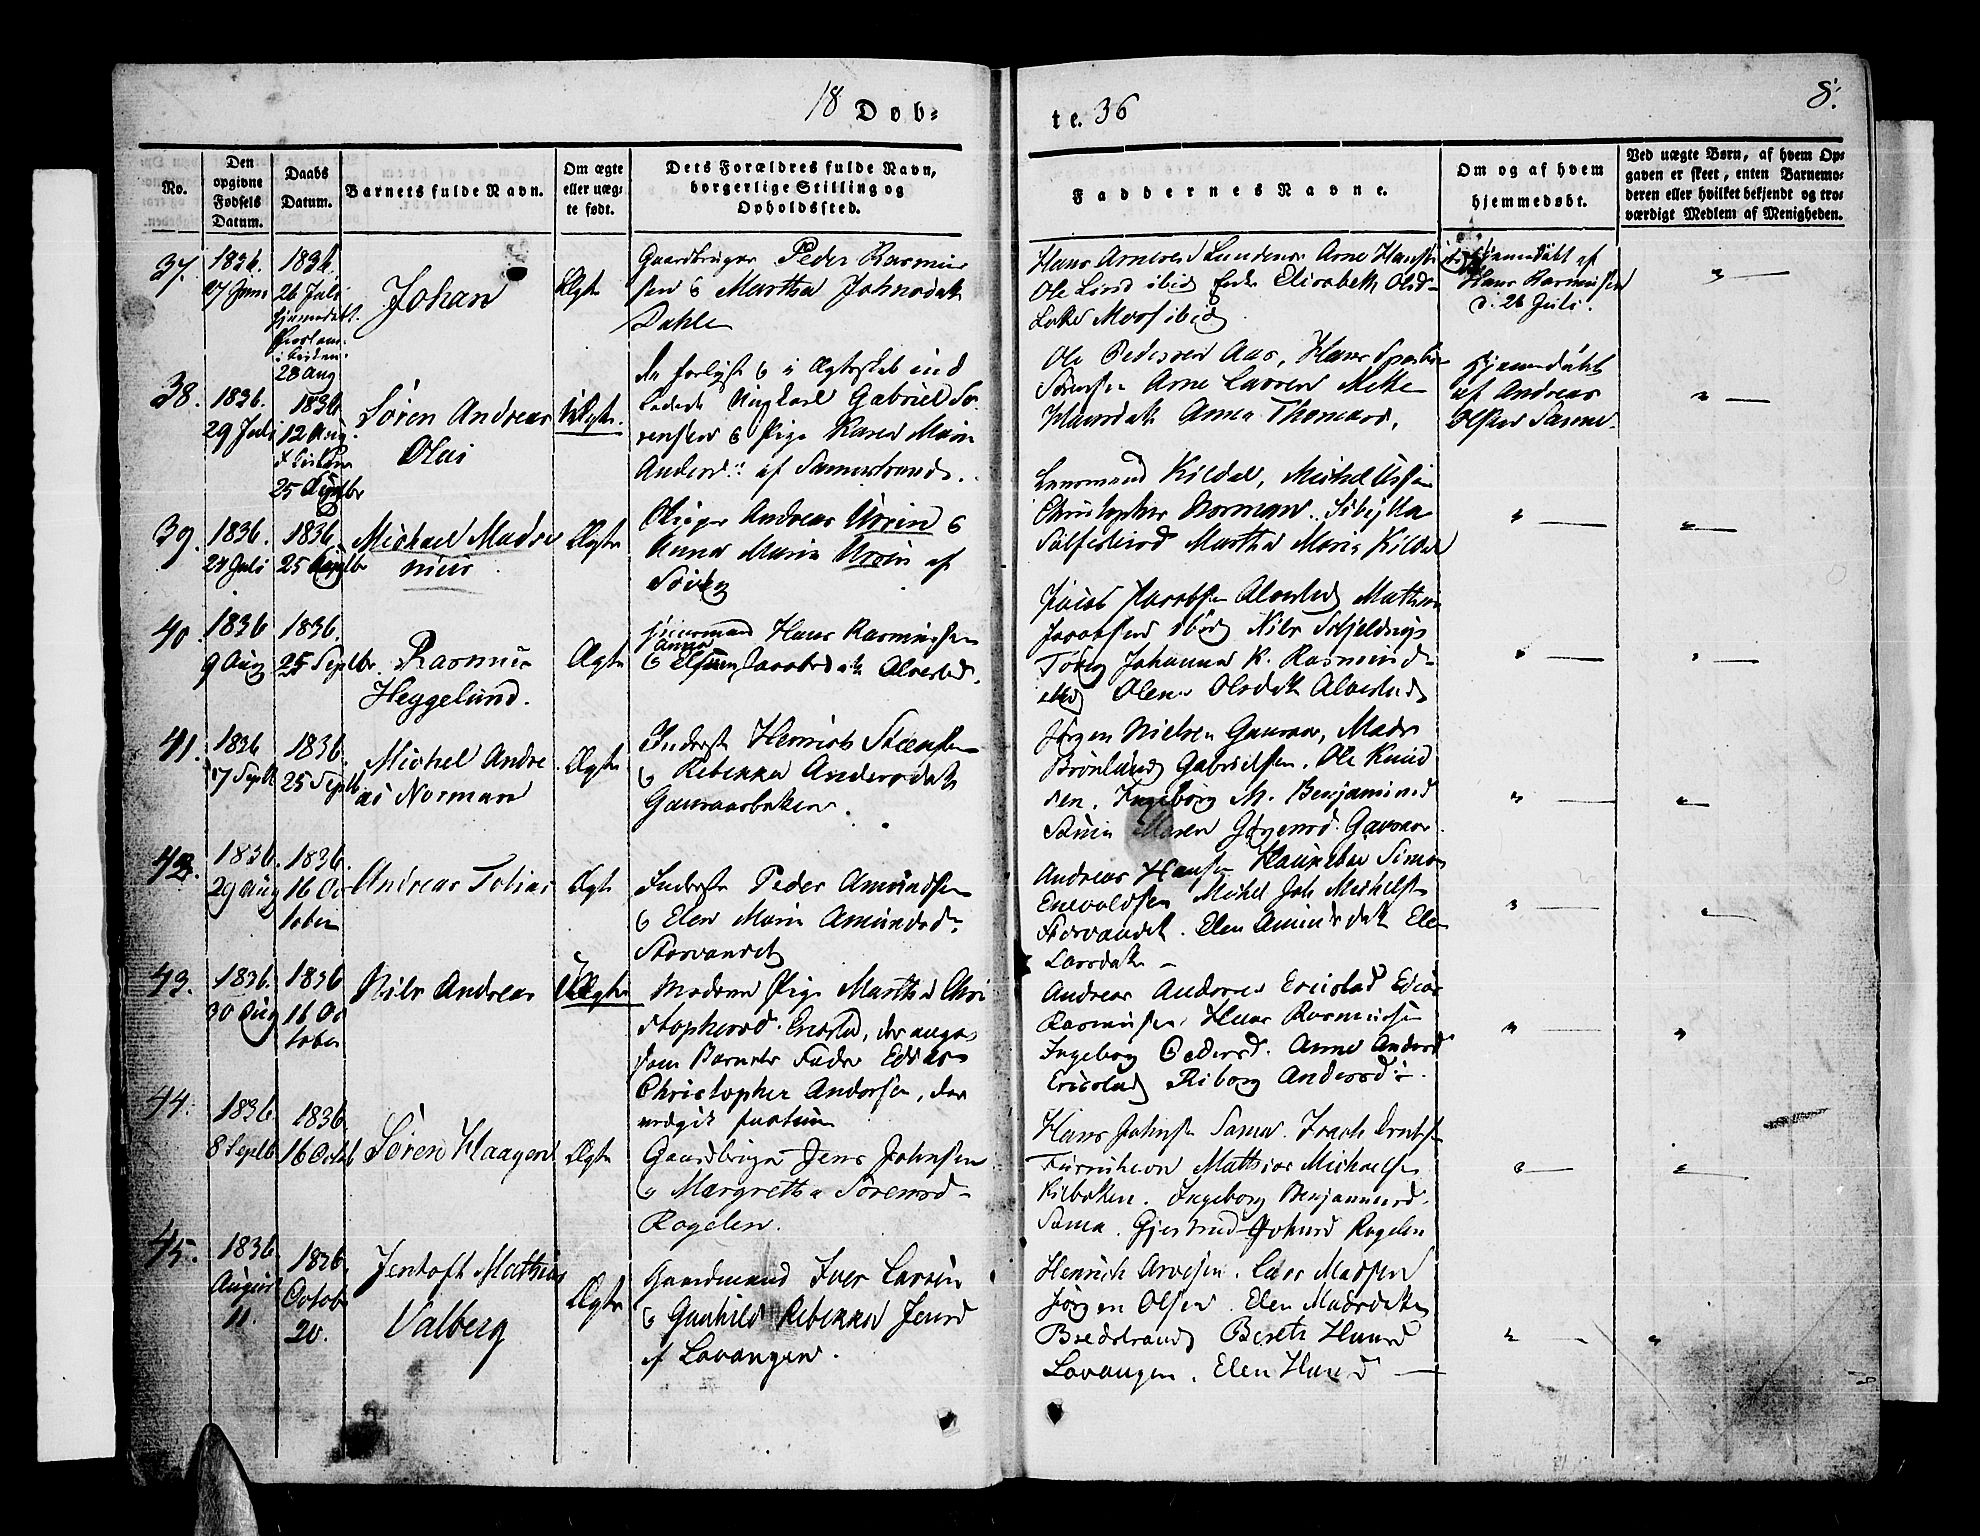 18 Døb-
te. 36
8.
No.
Den opgivne Fødsels Datum.
Daabs Datum.
Barnets fulde Navn.
Om ægte eller uæg-
te født.
Dets Forældres fulde Navn,
borgerlige Stilling og
Opholdssted.
Faddernes Navne.
Om og af hvem
hjemmedøbt.
Ved uægte Børn, af hvem Op-
gaven er skeet, enten Barnemo-
deren eller hvilket bekjendt og tro-
værdigt Medlem af Menigheden.
37.
1836.
27 Juni
1836.
26 Juli
hjemedøbt.
i Kirken.
28 Aug
Johan
Ægte
Gaardbruger Peder Rasmus
sen & Martha Johnsdatt
Dahle
Hans Arnesen Arne Hans
Ole ibid Elisabeth Olsd-
ibid
Hjemmedøbt af
Hans Rasmussen
d. 26 Juli.
38.
1836.
29 Juli
1836
12 Aug.
i Kirken
25 Septbr
Søren Andreas
Olai
UÆgte.
de forlovede & i Ægteskab ind
ladende Ungkarl Gabriel Sø-
rensen & Pige Karen Marie
Andersd: af Samestrand.
Ole Pedersen Aas, Hans
Sørensen Arne Larsen Mette
Hansdatt Anna Thomasd.
Hjemmedøbt
af Andreas
Olsen Same.
39.
1836.
24 Juli
1836.
25 Septbr
Michael Madse
nius
Ægte
Andreas Ursin &
Anna Maria Ursin af
Søveg
Lensmand Kildal, Michel Ursin
Christopher Norman. Sibylla
Martha Maria Kildal
40.
1836
9 Aug
1836.
25 Septbr.
Rasmus
Heggelund.
Ægte
Hans Rasmussen
Anna
& Jacobsdatt Alvestad.
Jacob Jacobsen Alvestad Mathias
Jacobsen ibid Nils Skjeldnys
Johanna K. Rasmusd-
ibid Olena Olsdatt Alvestad
41.
1836
17 Septbr
1836.
25 Septb
Michel Andre
as Norman
Ægte
Inderst Henrich Steensen
& Rebekka Andersdatt
Gausaasbakken.
Jørgen Nielsen Gausaas, Mads
Brønlund Gabrielsen. Ole Knud
sen. Ingeborg M. Benjaminsd
Sama Maren Jørgensd. Gausaas.
42.
1836.
29 Aug
1836.
16 Oc
tober
Andreas Tobias
Ægte
Inderst Peder Amundsen
& Elen Marie Amundsd-
Storvandet
Andreas Hansen Simon
Enevoldsen Michel Joh Michelsen
Storvandet. Elen Amundsdatt Elen
Larsdatt -
43.
1836.
30 Aug
1836
16 Oc
tober
Nils Andreas
UÆgte
Moderen Pige Martha Chri
stophersd. Ervestad, der angav
som Barnets Fader Edias
Christopher Andersen, der
vedgik
Andreas Andersen Edias
Rasmussen, Hans Rasmussen
Ingeborg Pedersd. Anne Andersd
Riborg Andersd.
44.
1836
8 Septb
1836.
16 Octob
Søren Haagen
Ægte
Gaardbruger Jens Johnsen
& Margretha Sørensd-
Rogelen.
Hans Johnsen Sama. Isach
Mathias Michaelsen
Kilbotten. Ingeborg Benjaminsd.
Sama. Gjertrud Johnsd Rogelen
45.
1836
August
11.
1836.
October
20.
Jentoft Mathias
Valberg
Ægte
Gaardmand Iver Larsen
& Gunhild Rebekka Jensd
af Lavangen.
Henrich Arnesen. Lars Madsen
Jørgen Olsen. Elen Madsdatt
Bredstrand Bereth Hansd
Lavangen. Elen Hansd